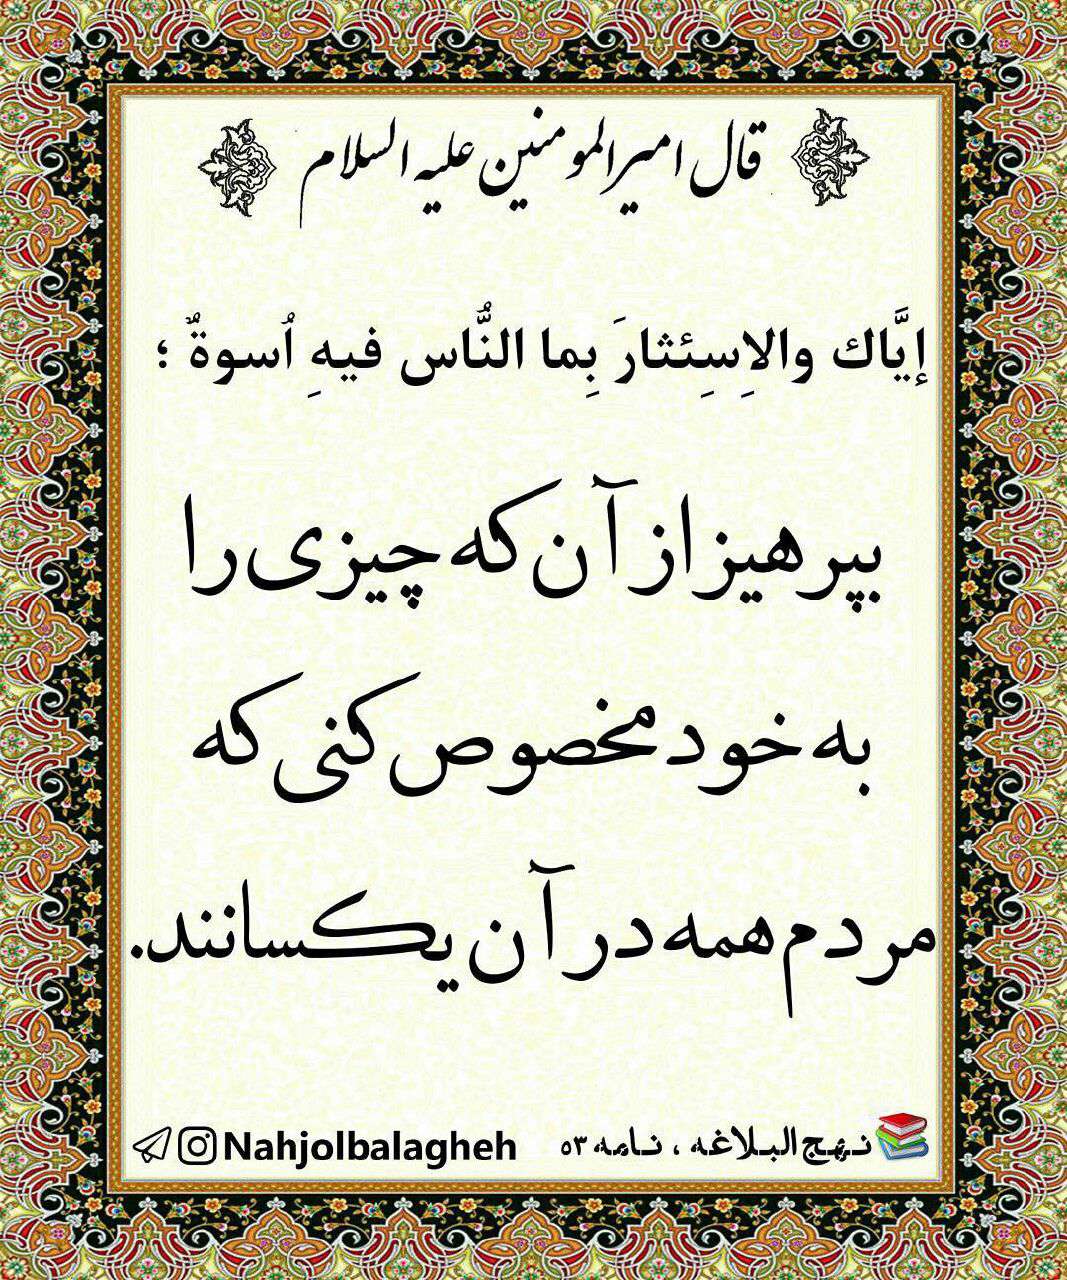 قال امیرالمومنین علیه السلام
إيَّاك والاِسِئثارَ بِما النُّاس فيهِ اُسوةٌ ؛
بپرهیز از آن که چیزی را
به خود مخصوص کنی که
مردم همه در آن یکسانند.
نهج البلاغه ، نامه ٥٣
Nahjolbalagheh